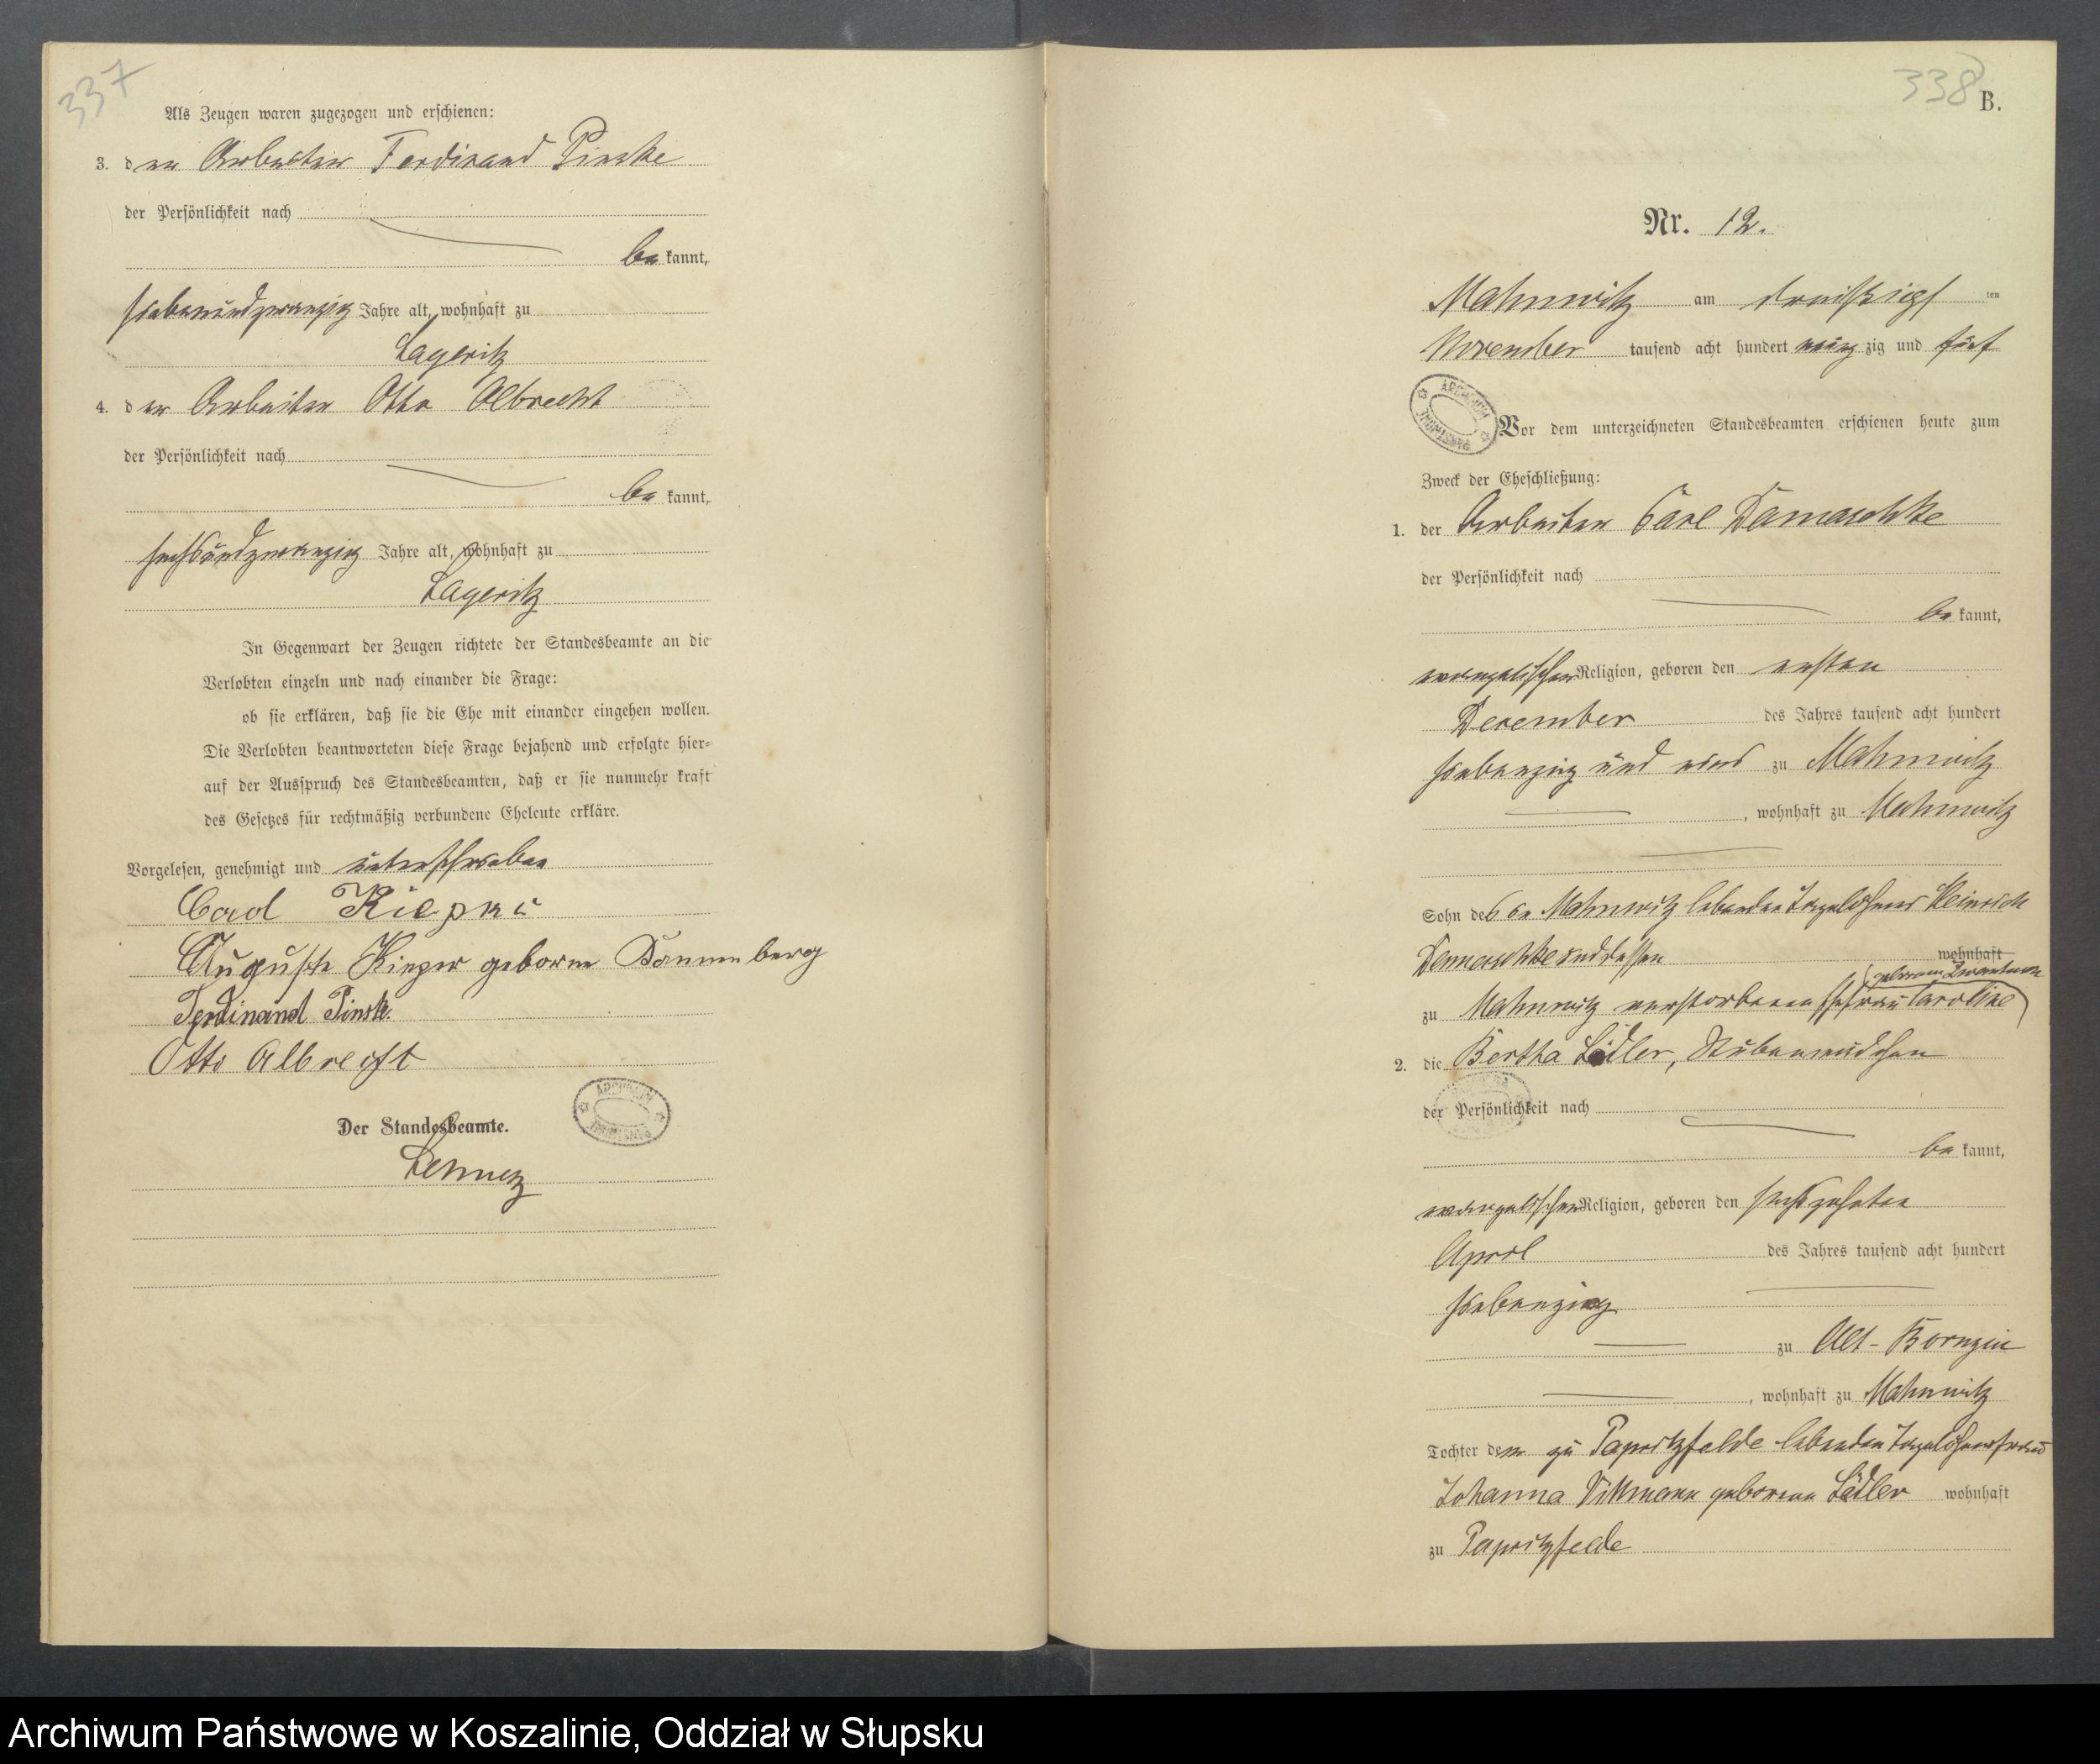 337
Als Zeugen waren zugezogen und erschienen:
3. der Arbeiter Ferdinand Pinske
der Persönlichkeit nach
be kannt,
siebenundzwanzig Jahre alt, wohnhaft zu
Lageritz
4. der Arbeiter Otto Albrecht
der Persönlichkeit nach
be kannt,
sechsundzwanzig Jahre alt, wohnhaft zu
Lageritz
In Gegenwart der Zeugen richtete der Standesbeamte an die
Verlobten einzeln und nach einander die Frage:
ob sie erklären, daß sie die Ehe mit einander eingehen wollen.
Die Verlobten beantworteten diese Frage bejahend und erfolgte hier-
auf der Ausspruch des Standesbeamten, daß er sie nunmehr kraft
des Gesetzes für rechtmäßig verbundene Eheleute erkläre.
Vorgelesen, genehmigt und unterschrieben
Carl
Auguste geborne Dannenberg
Ferdinand Pinsk.
Otto Albrecht
Der Standesbeamte.
338
B.
Nr. 12.
Mahnwitz am dreißigs ten
November tausend acht hundert neun zig und fünf
ARCHIWUM PAŃSTWOWE
Vor dem unterzeichneten Standesbeamten erschienen heute zum
Zweck der Eheschließung:
1. der Arbeiter Carl Damaschke
der Persönlichkeit nach
be kannt,
evangelischer Religion, geboren den ersten
Dezember des Jahres tausend acht hundert
siebenzig und eins zu Mahnwitz
, wohnhaft zu Mahnwitz
Sohn des in Mahnwitz lebenden Tagelöhners Heinrich
Damaschke und dessen wohnhaft
geborene
zu Mahnwitz verstorbenen Ehefrau Caroline
2. die Bertha Lädler, Stubenmädchen
der Persönlichkeit nach
be kannt,
evangelischer Religion, geboren den sechszehnten
April des Jahres tausend acht hundert
siebenzig
zu Alt-Bornzin
, wohnhaft zu Mahnwitz
Tochter der zu Papritzfelde lebenden Tagelöhnerfrau
Johanna geborene Lädler wohnhaft
zu Papritzfelde
Archiwum Państwowe w Koszalinie, Oddział w Słupsku